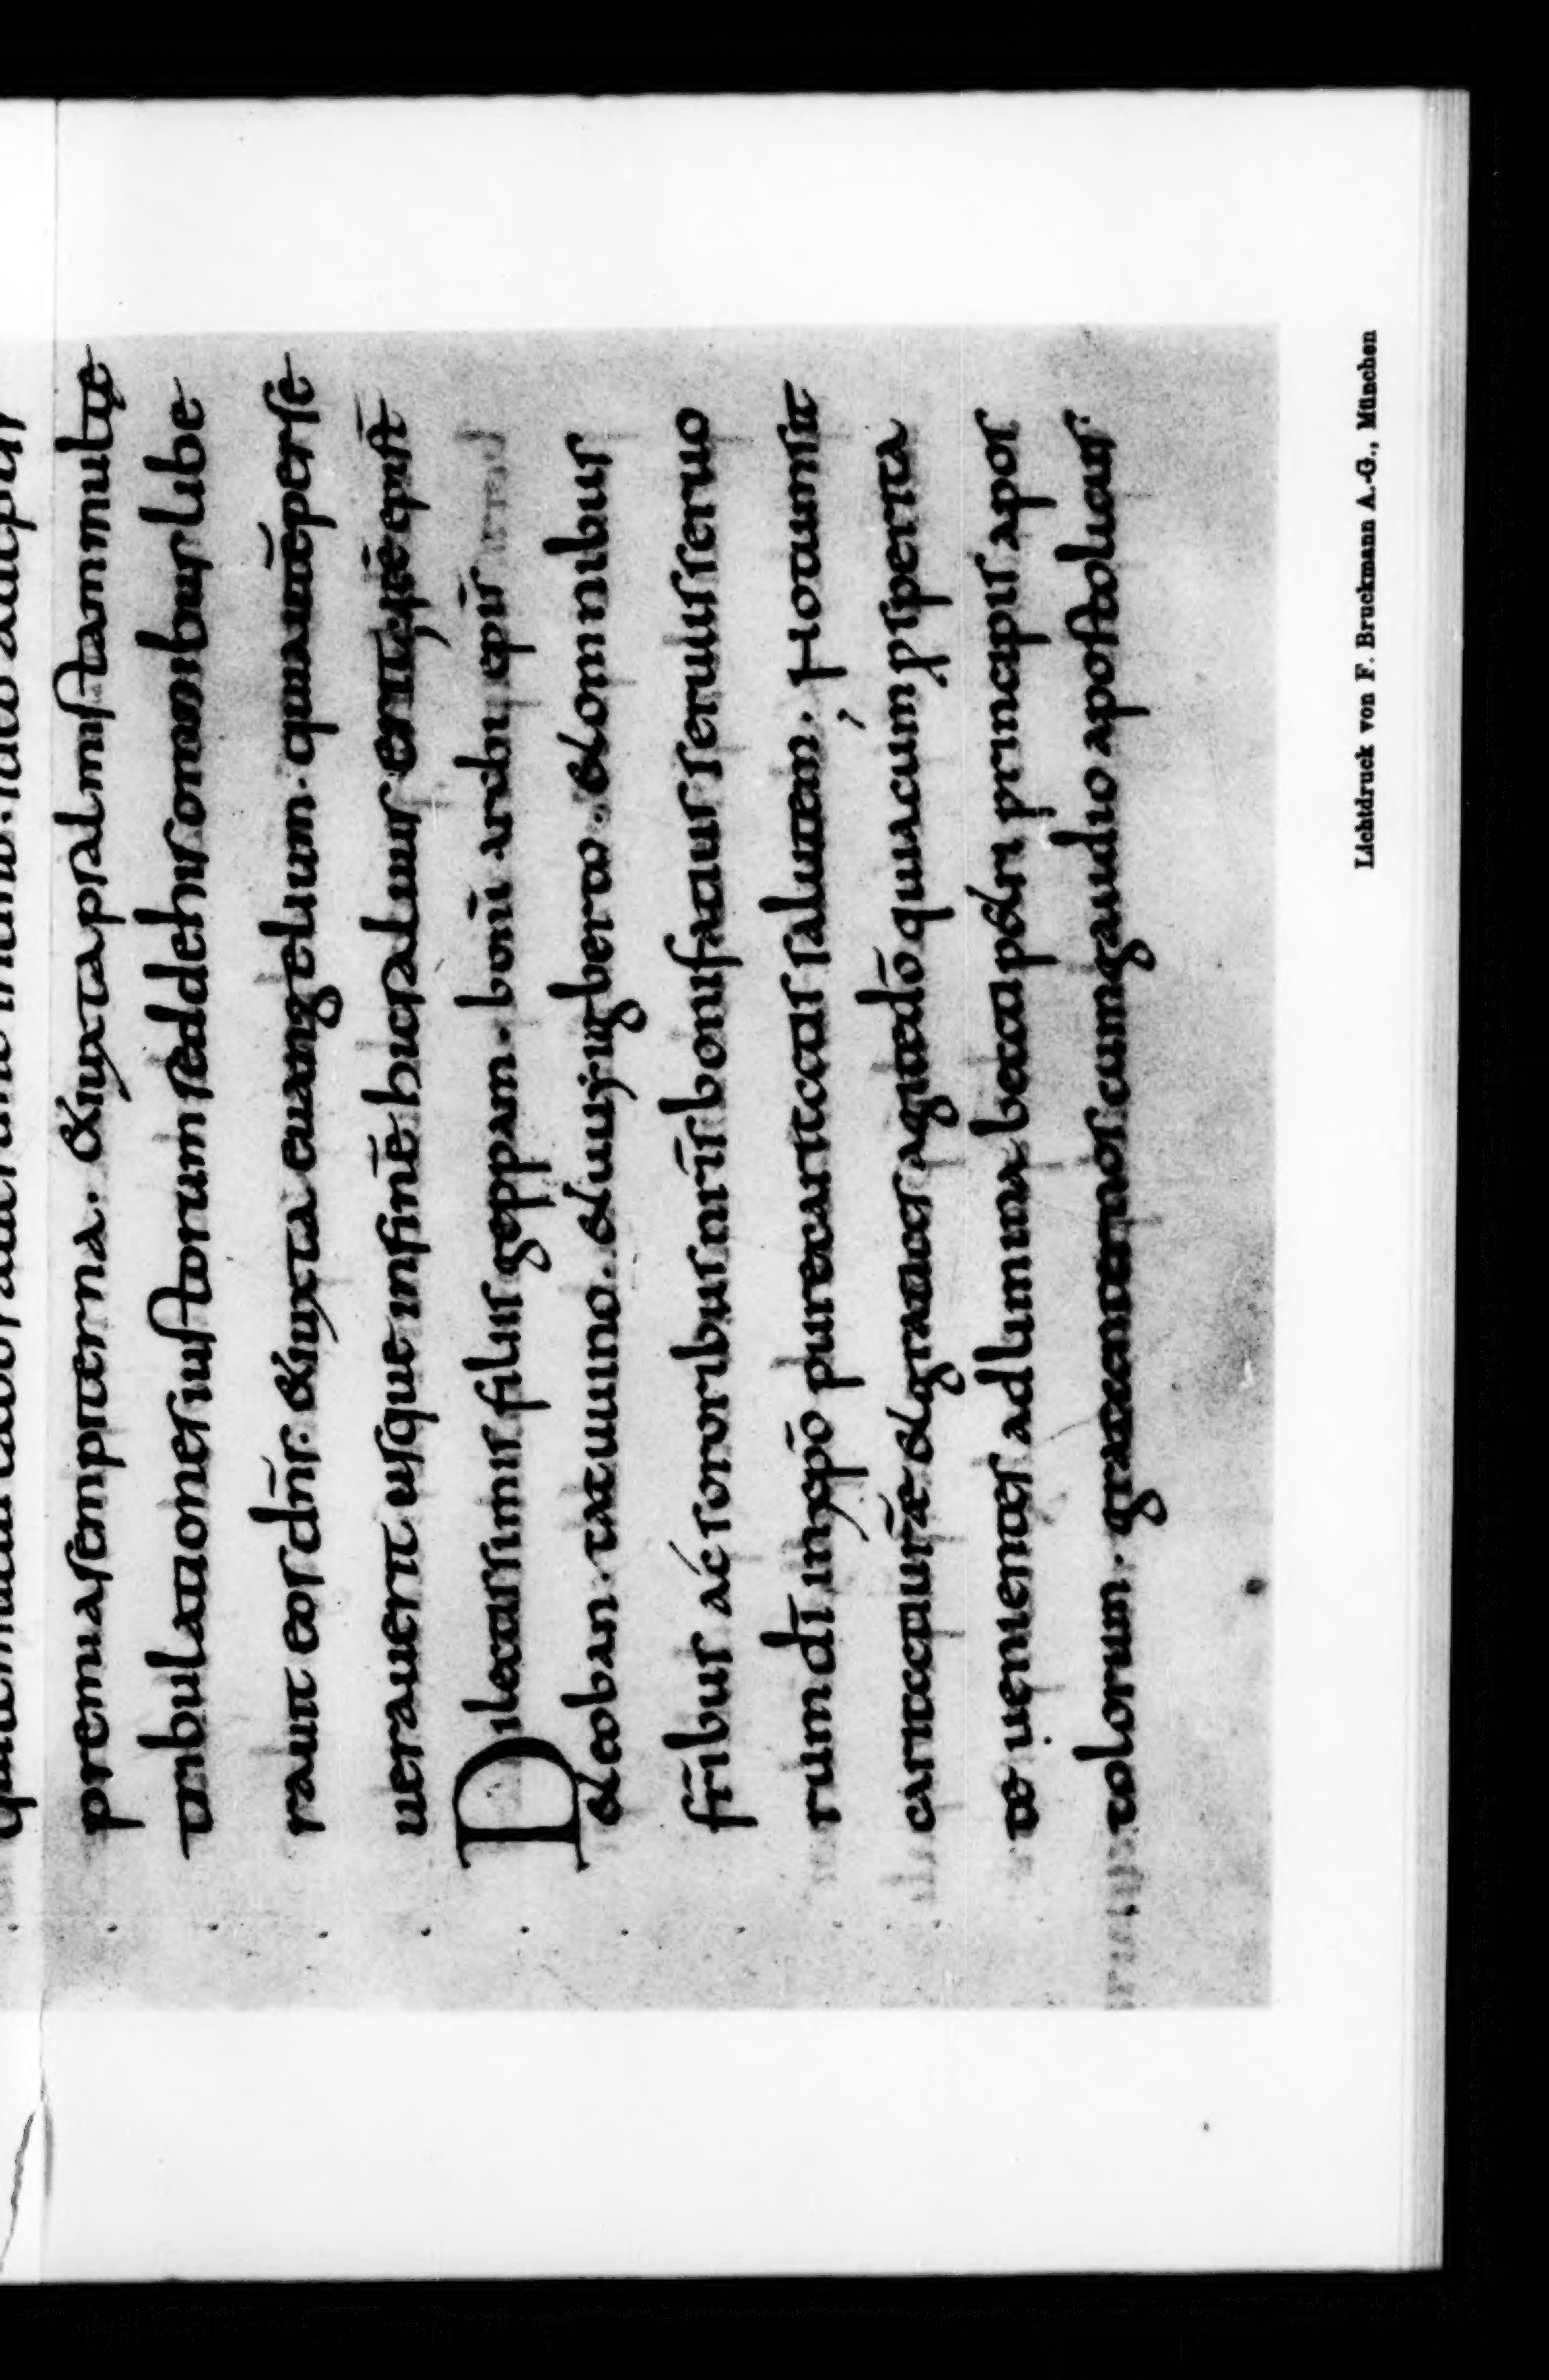 premia sempiterna. & iuxta psalmistam multę
tribulationes iustorum sed de his omnibus libe
rauit eos dn̄s. & iuxta euangelium. qui autē perse
uerauerit usque in finē hic saluus erit
Dilectissimis filiis geppam. bonī archi epī
& eoban. tatuuino. & uuigberto. & omnibus
fr̄ibus ác sororibus nr̄is bonifatius seruus seruo
rum dī in xpō pure caritatis salutem. Notum sit
caritati ur̄ae & gratias agite dō quia cum prspera
to uenientes ad limina beati petri principis apos
tolorum. nos cum gaudio apostolicus.
Lichtdruck von F. Bruckmann A.-G., München